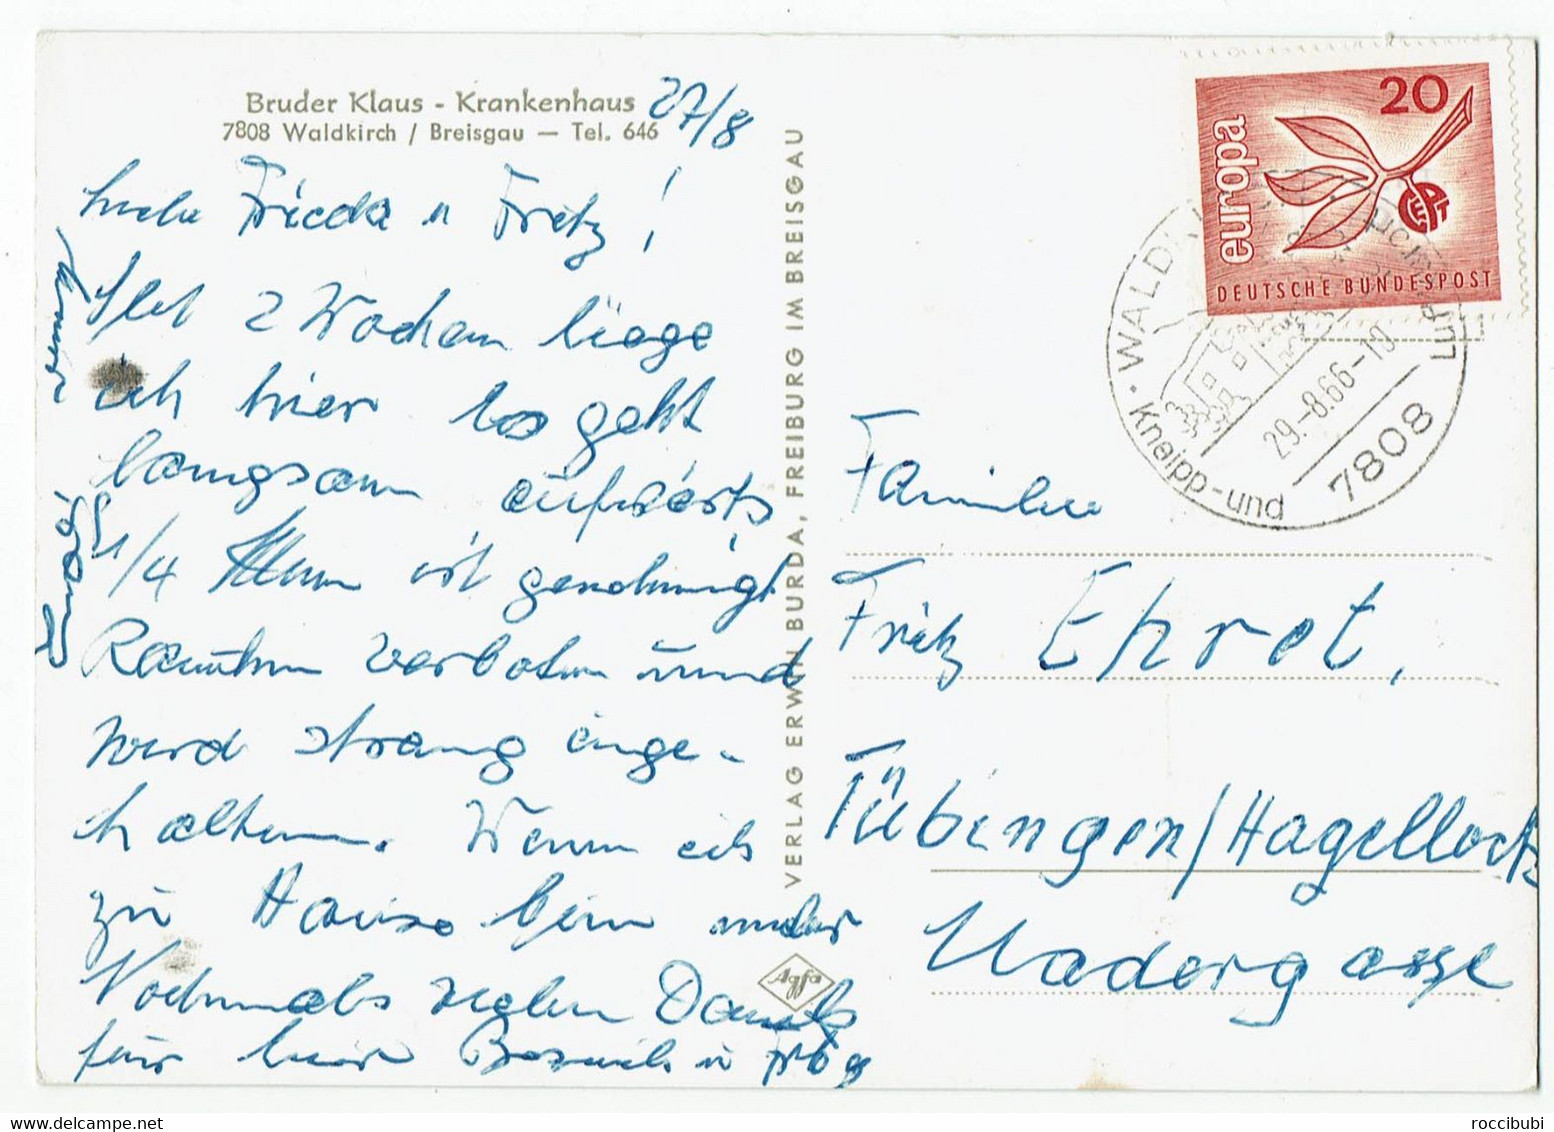 Bruder Klaus - Krankenhaus
7808 Waldkirch / Breisgau — Tel. 646
27/8
Liebe Frieda u Fritz!
2 Wochen liege
ich hier es geht
langsam aufwärts
1/4 ist genehmigt
Rauchen verboten und
wird streng einge-
halten. Wenn ich
zu Hause bin
Nochmals vielen Dank
für Besuch u
VERLAG ERWIN BURDA, FREIBURG IM BREISGAU
Agfa
20
europa
CEPT
DEUTSCHE BUNDESPOST
WALDKIRCH
Kneipp-und
Luft
29.-8.66-10
7808
Familie
Fritz Ehret,
Tübingen/Hagelloch
gasse
roccibubi